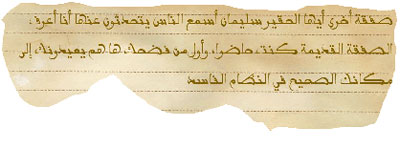 صفقة أخرى أيها الحقير سليمان أسمع الناس يتحدثون عنها أنا أعرف
الصفقة القديمة كنت حاضرا، وأول من فضحك. ها هم يعيدونك إلى
مكانك الصحيح في النظام الفاسد